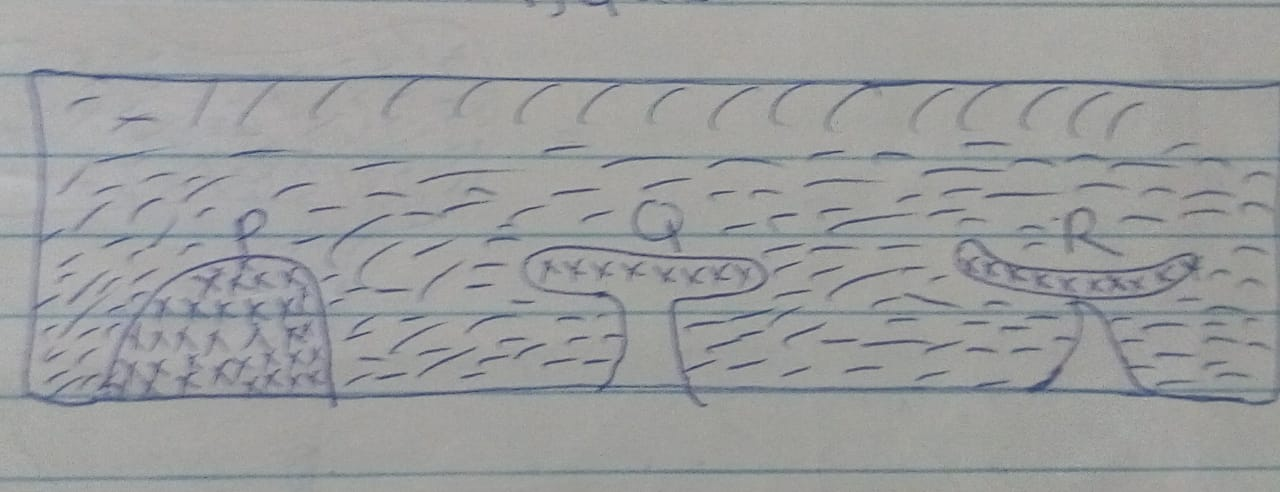 P
Q
R